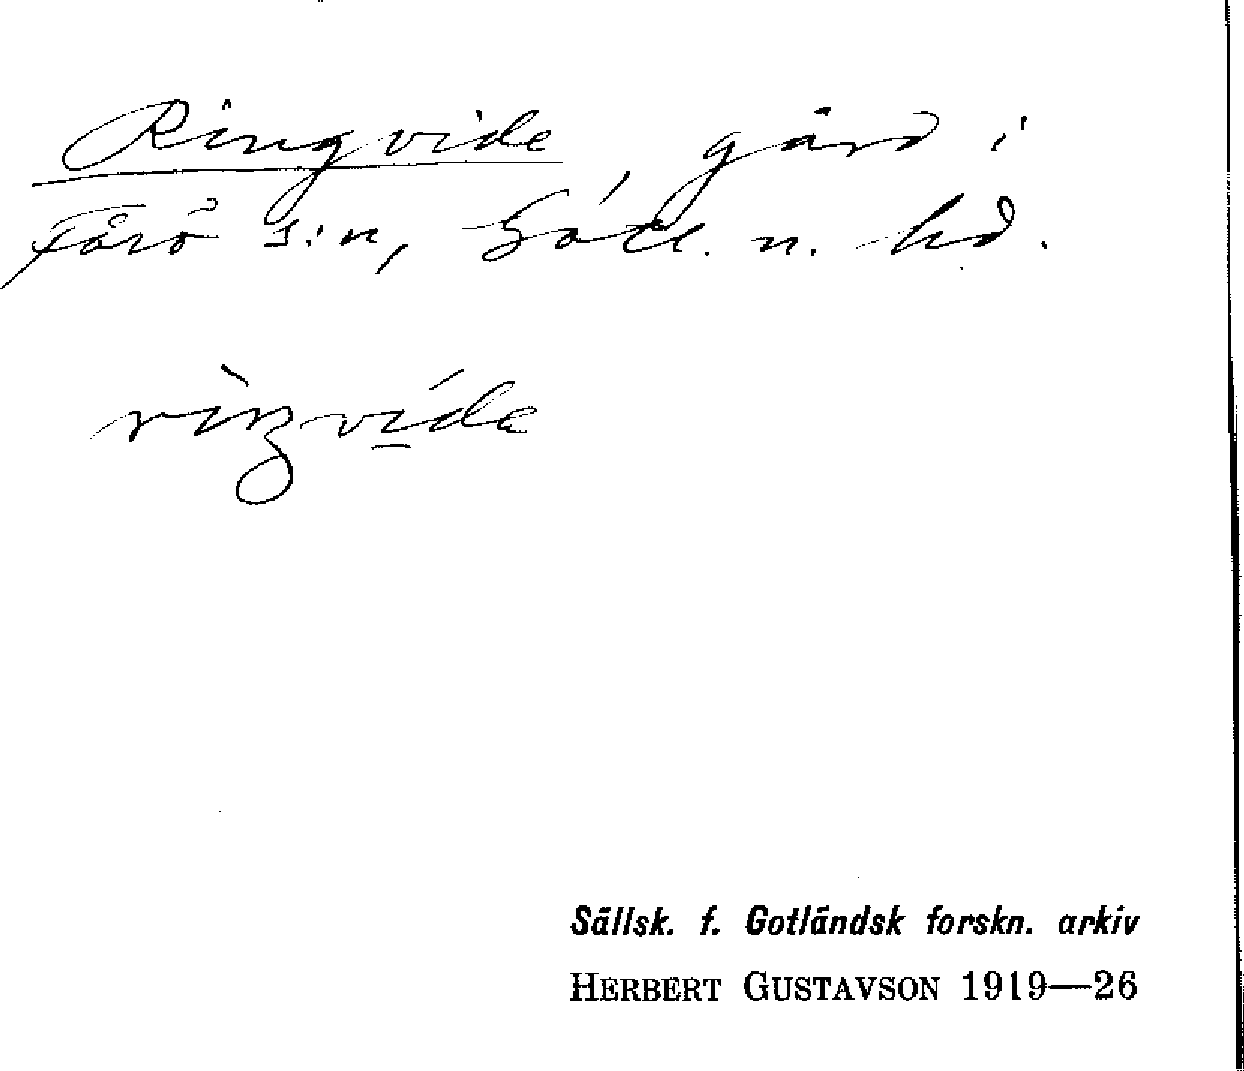 Ringvide, gård i
Fårö s:n, Gotl. n. hd.
rìŋví̱də
Sällsk. f. Gotländsk forskn. arkiv
HERBERT GUSTAVSON 1919—26